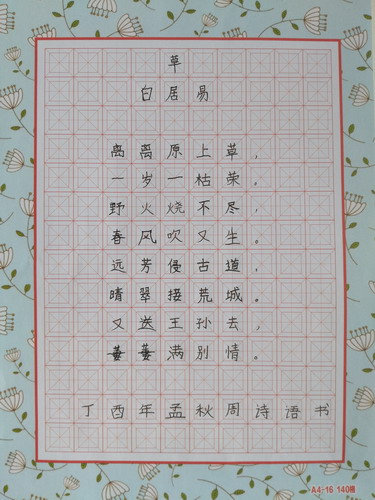 草
白居易
离离原上草,
一岁一枯荣。
野火烧不尽,
春风吹又生。
远芳侵古道,
晴翠接荒城。
又送王孙去,
萋萋满别情。
丁酉年孟秋周诗语书
A4-16 140格